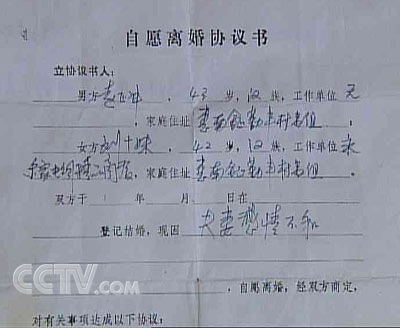 自愿离婚协议书
立协议书人：
男方 , 43 岁, 汉 族, 工作单位 无
, 家庭住址 娄南 勤丰村 组。
女方 刘十妹 , 42 岁, 汉 族, 工作单位
, 家庭住址 娄南 勤丰村 组。
双方于 年 月 日在
登记结婚，现因 夫妻感情不和
CCTV.com
，自愿离婚，经双方商定，
对有关事项达成以下协议：